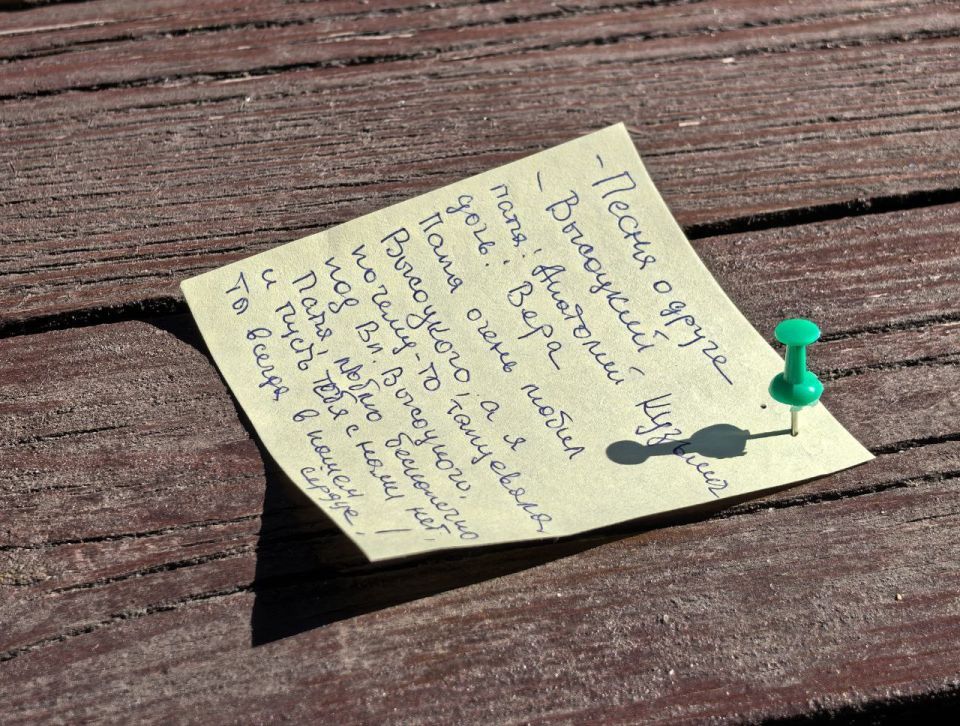 - Песня о друге
- Высоцкий
папа: Анатолий Кузьмич
дочь: Вера
Папа очень любил
Высоцкого, а я
почему-то танцевала
под Вл. Высоцкого.
Папа, люблю бесконечно
и пусть тебя с нами нет,
то всегда в нашем
сердце!